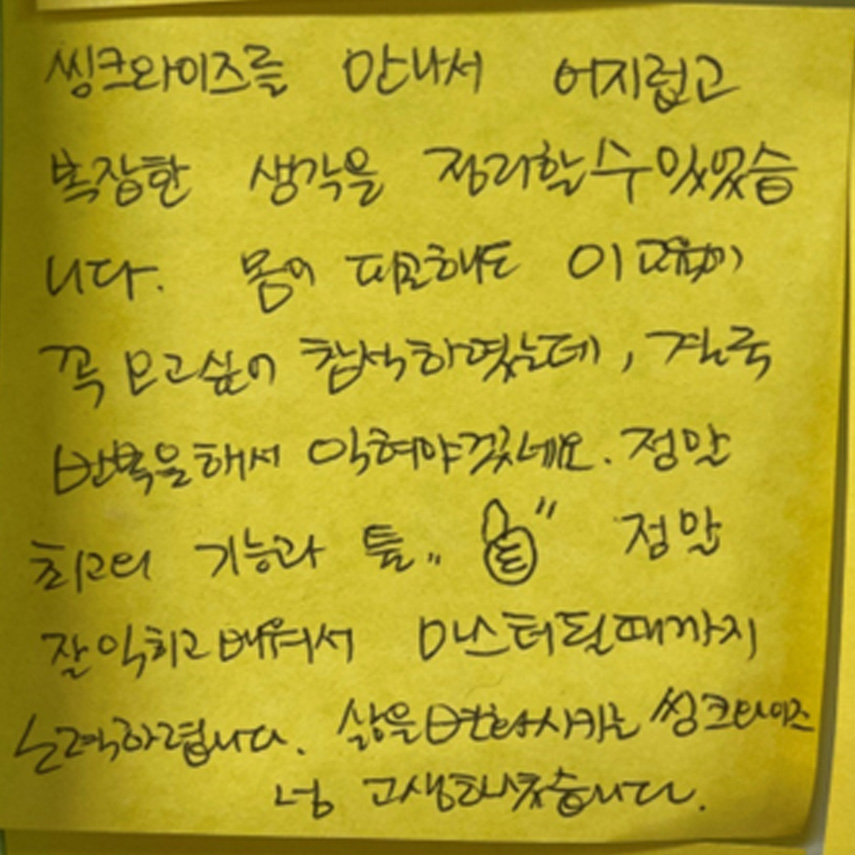 씽크와이즈를 만나서 어지럽고
복잡한 생각을 정리할 수 있었습
니다. 몸이 피곤해도 이 교육이
꼭 오고싶어 참석하였는데, 결국
반복을 해서 익혀야겠네요. 정말
최고의 기능과 툴,, 정말
잘 익히고 배워서 마스터될때까지
노력하렵니다. 삶을 변화시키는 씽크와이즈
넘 고생하셨습니다.